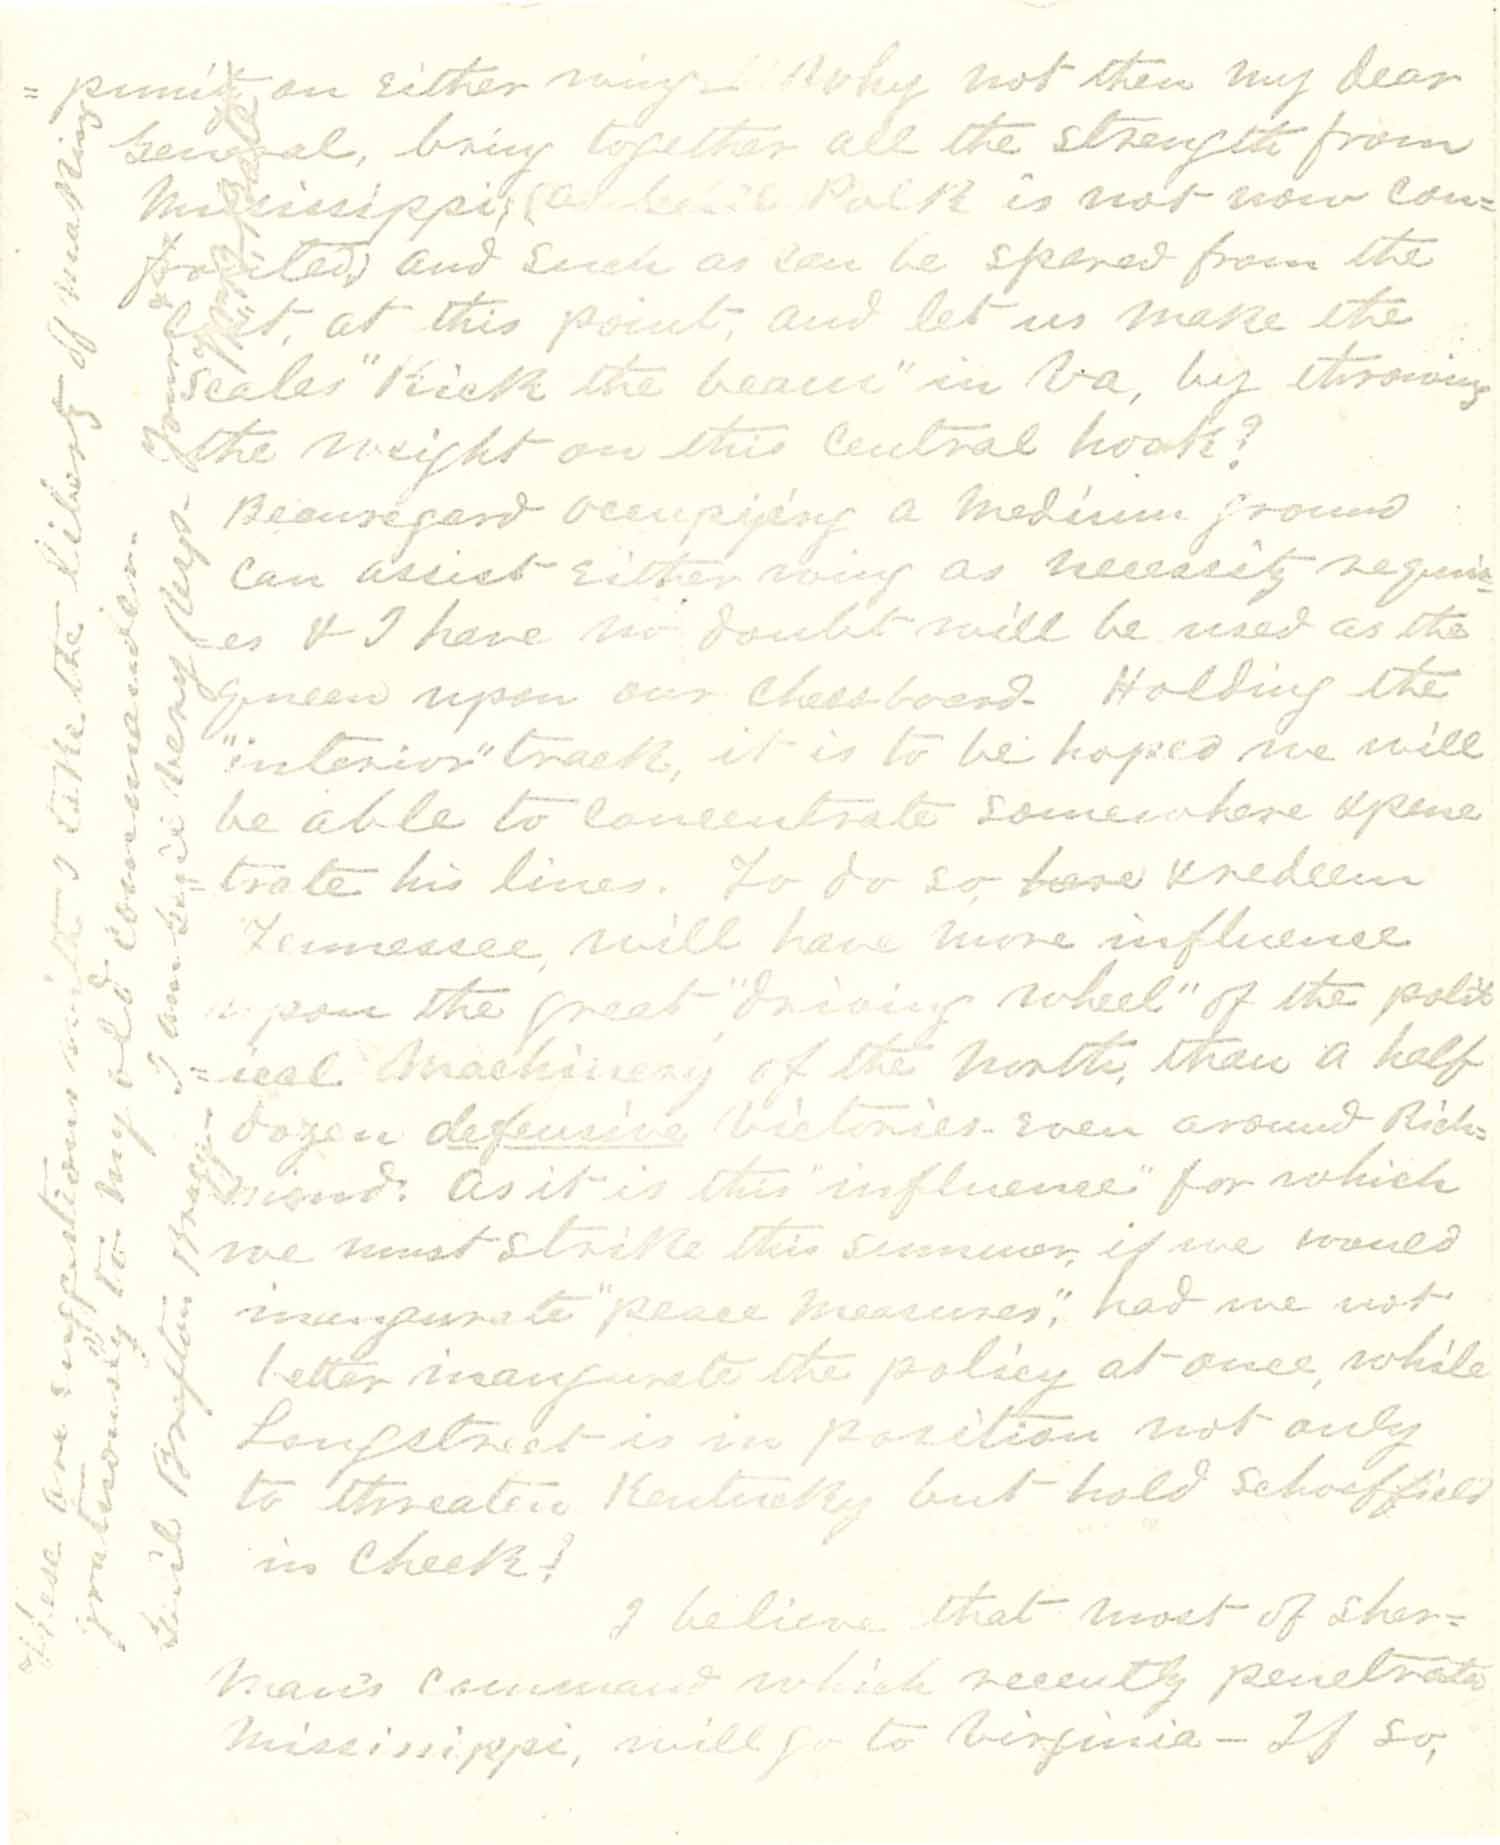 = punity on either wing - Why not then my dear
General, bring together all the strength from
Mississippi, (as Polk is not now con=
fronted) and such as can be spared from the
East, at this point, and let us make the
scales "Kick the beam" in Va, by throwing
the weight on this central hook?
Beauregard occupying a medium ground
can assist either wing as necessity requir=
=es & I have no doubt will be used as the
queen upon our chessboard - Holding the
"interior" track, it is to be hoped we will
be able to concentrate somewhere & pene
=trate his lines. To do so, here & redeem
Tennessee, will have more influence
upon the great "driving wheel" of the polit
=ical machinery of the North, than a half
dozen defensive victories - even around Rich=
mond. As it is this "influence" for which
we must strike this summer, if we would
inaugurate "peace measures", had we not
better inaugurate the policy at once, while
Longstreet is in position not only
to threaten Kentucky but hold Schoffield
in check?
I believe that most of Sher=
man's command which recently penetrated
Mississippi, will go to Virginia - If so,
These are suggestions with I take the liberty of making
gratuitously to my old commander.
I am Gen'l very Resp. Your
Gen'l Braxton Bragg -